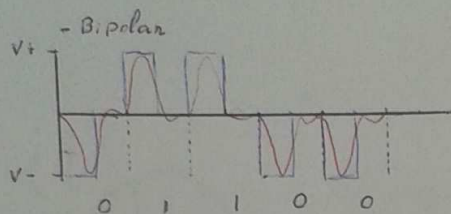 - Bipolar
V+
V-
0 1 1 0 0